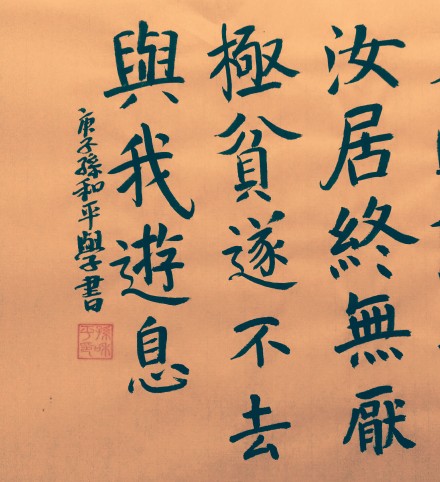 汝居終無厭
極貧遂不去
與我遊息
庚子孫和平學書